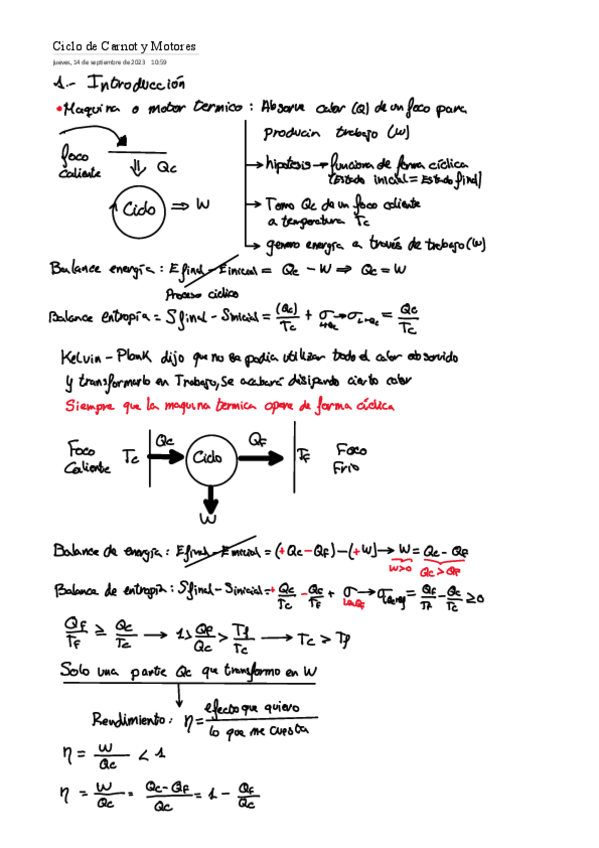 Ciclo de Carnot y Motores
jueves, 14 de septiembre de 2023 10:59
1.- Introducción
• Maquina o motor termico: Absorve calor (Q) de un foco para
producir trabajo (W)
foco
caliente
Qc
Ciclo ⇒ W
→ hipotesis → funciona de forma cíclica
(Estado inicial = Estado final)
→ Tomo Qc de un foco caliente
a temperatura Tc
→ genero energía a través de trabajo (W)
Balance energía: Efinal - Einicial = Qc - W ⇒ Qc = W
Proceso ciclico
Balance entropía = Sfinal - Sinicial = (Qc)/Tc + σ → σ = Qc/Tc
Kelvin - Plank dijo que no se podia utilizar todo el calor absorvido
y transformarlo en Trabajo, se acabará disipando cierto calor
Siempre que la maquina termica opere de forma cíclica
Foco
Caliente
Tc Qc Ciclo QF TF
Foco
Frio
W
Balance de energía: Efinal - Einicial = (+Qc - QF) - (+W) → W = Qc - QF
W>0 Qc > QF
Balance de entropia: Sfinal - Sinicial = + Qc/Tc - QF/TF + σ → σ = QF/TF - Qc/Tc ≥ 0
QF/TF ≥ Qc/Tc → 1 > QF/Qc > Tf/Tc → Tc > Tf
Solo una parte Qc que transformo en W
Rendimiento: η = efecto que quiero / lo que me cuesta
η = W/Qc < 1
η = W/Qc = Qc - QF/Qc = 1 - QF/Qc